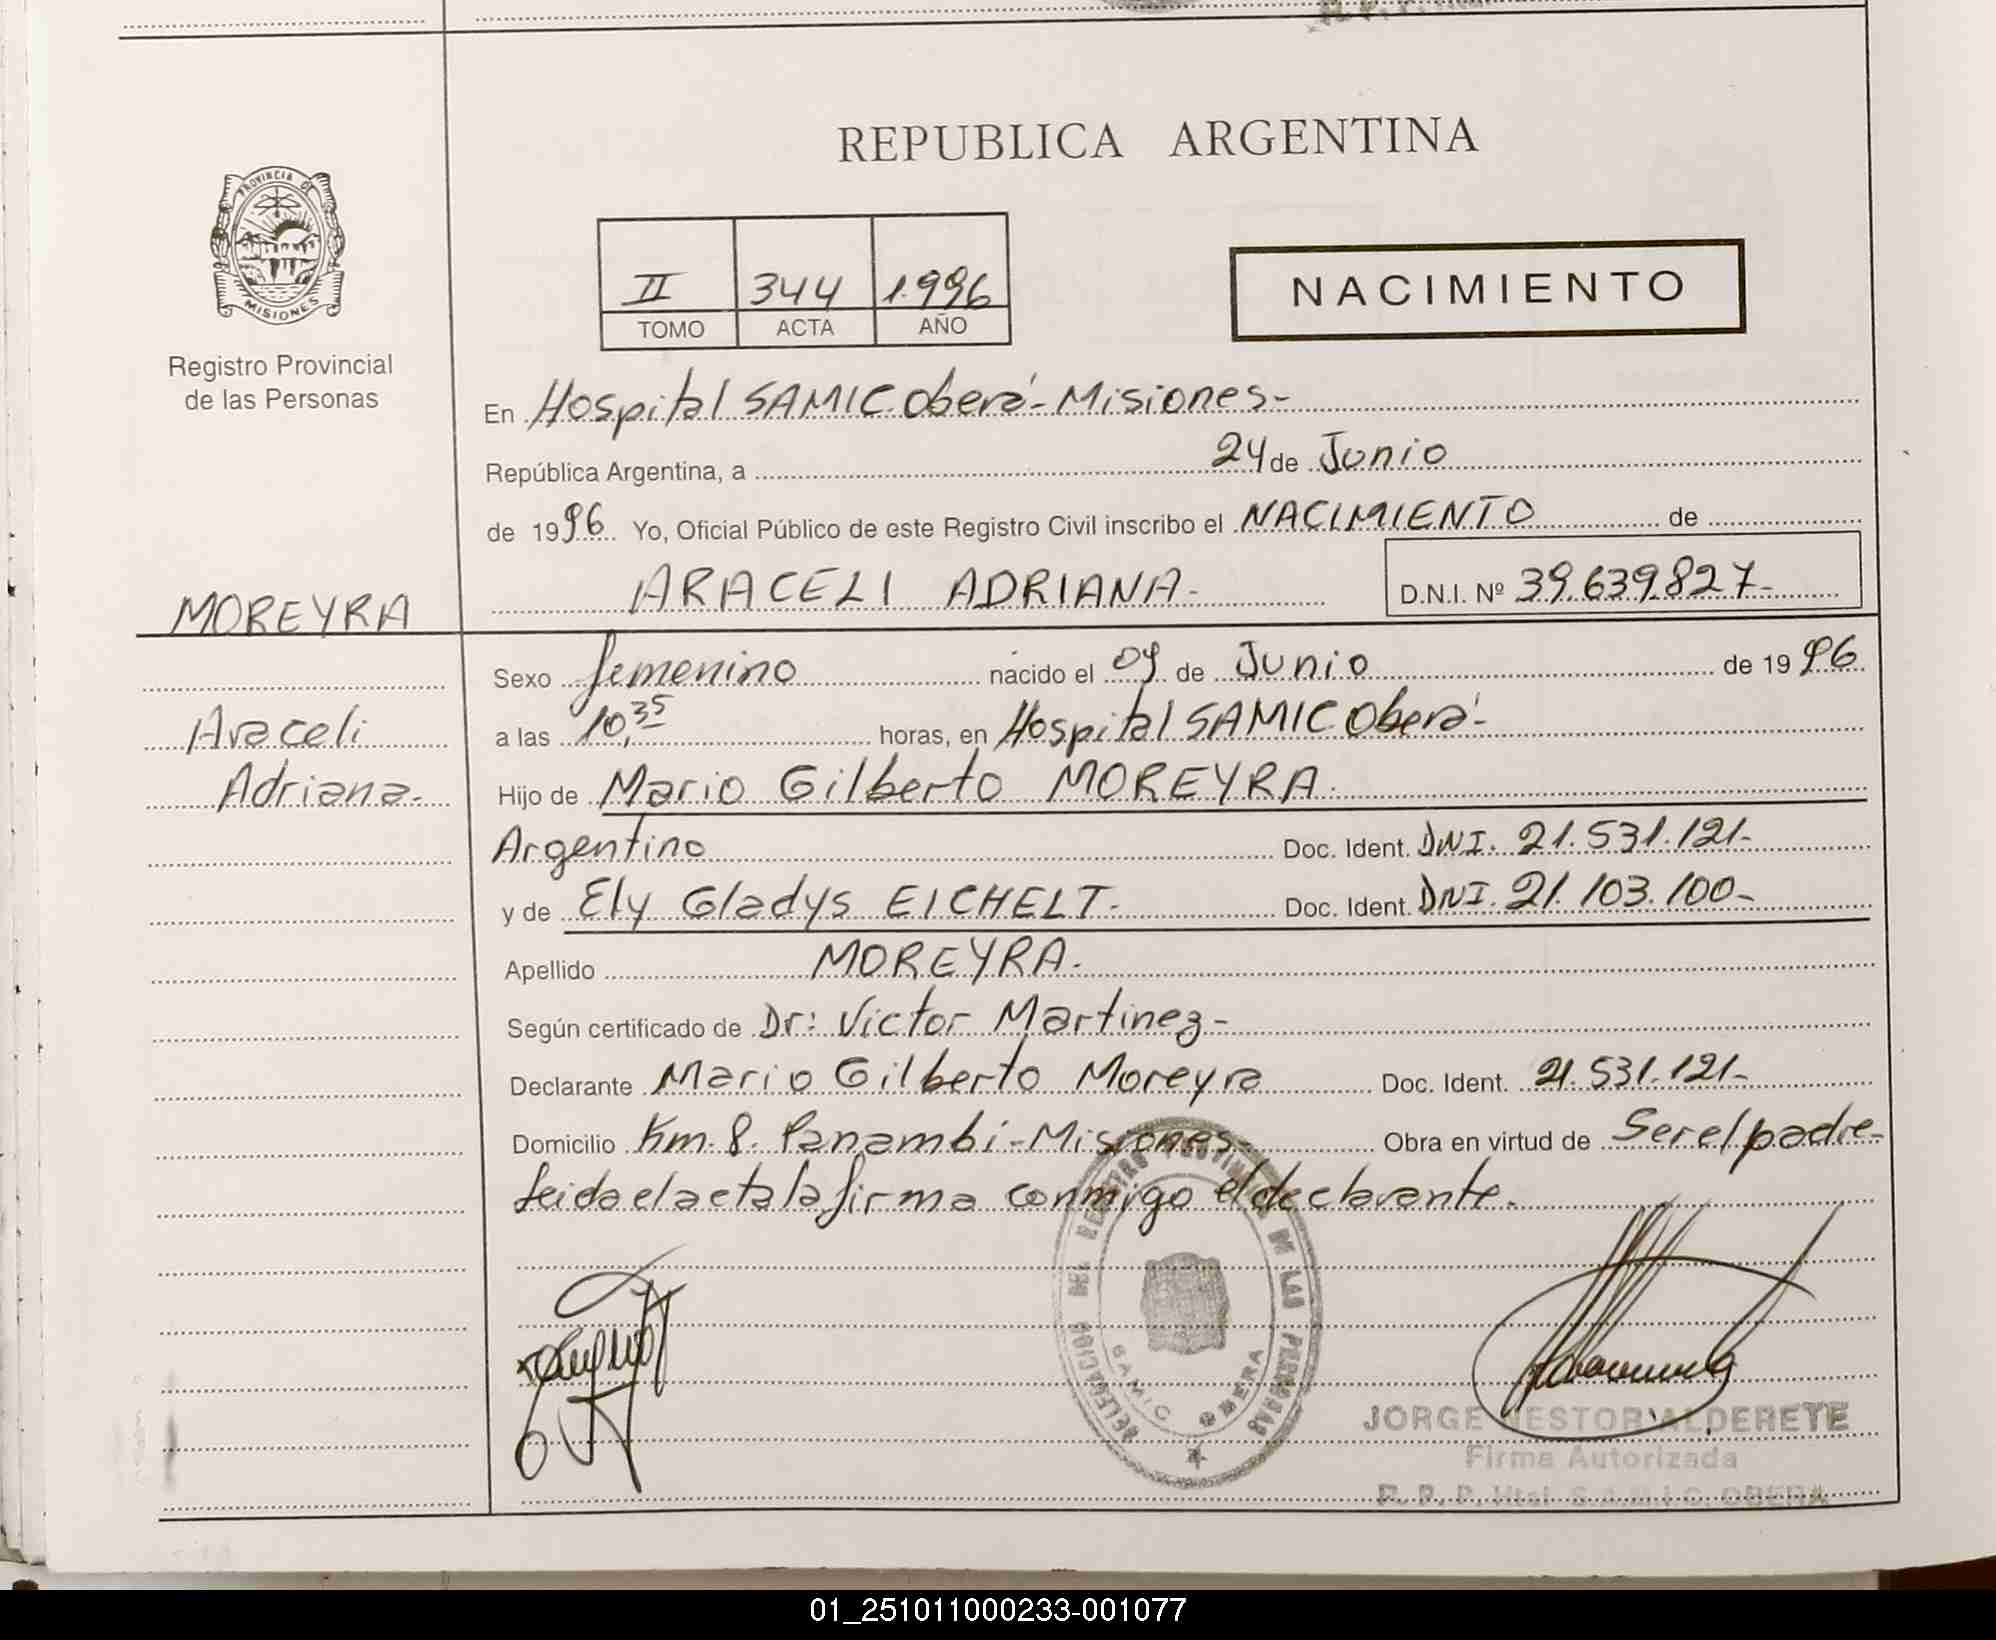 REPUBLICA ARGENTINA
PROVINCIA DE
MISIONES
Registro Provincial
de las Personas
II 344 1.996
TOMO ACTA AÑO
NACIMIENTO
En Hospital SAMIC Oberá - Misiones-
República Argentina, a 24 de Junio
de 1996 Yo, Oficial Público de este Registro Civil inscribo el NACIMIENTO de
ARACELI ADRIANA- D.N.I. Nº 39.639.827-
MOREYRA
Araceli
Adriana-
Sexo femenino nacido el 09 de Junio de 1996
a las 10,35 horas, en Hospital SAMIC Oberá-
Hijo de Mario Gilberto MOREYRA.
Argentino Doc. Ident. DNI. 21.531.121-
y de Ely Gladys EICHELT- Doc. Ident. DNI. 21.103.100-
Apellido MOREYRA.
Según certificado de Dr: Victor Martinez-
Declarante Mario Gilberto Moreyra Doc. Ident. 21.531.121-
Domicilio Km. 8. Panambi-Misiones- Obra en virtud de Ser el padre-
Leida el acta la firma conmigo el declarante-
DELEGACION DEL REGISTRO PROVINCIAL DE LAS PERSONAS
SAMIC OBERA
JORGE NESTOR ALDERETE
Firma Autorizada
R. P. P. Htal. S.A.M.I.C. OBERA
01_251011000233-001077